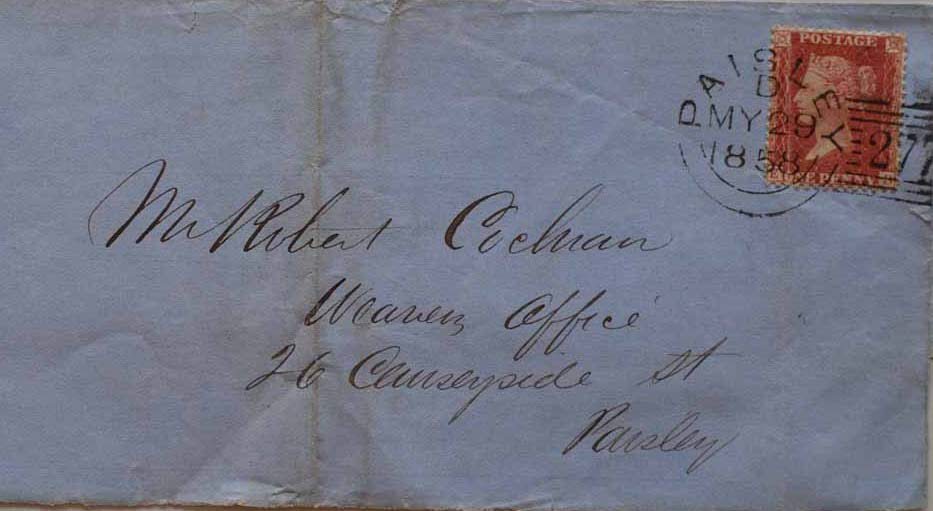 POSTAGE
ONE PENNY
PAISLEY
D
MY 29
1858
277
Mr Robert Cochran
Weavers Office
26 Causeyside St
Paisley